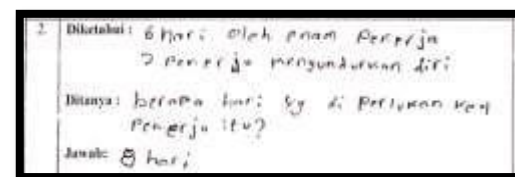 2. Diketahui : 6 hari oleh enam Pekerja
2 Pekerja mengundurkan diri
Ditanya : berapa hari yg di Perlukan
Pekerja itu?
Jawab: 8 hari